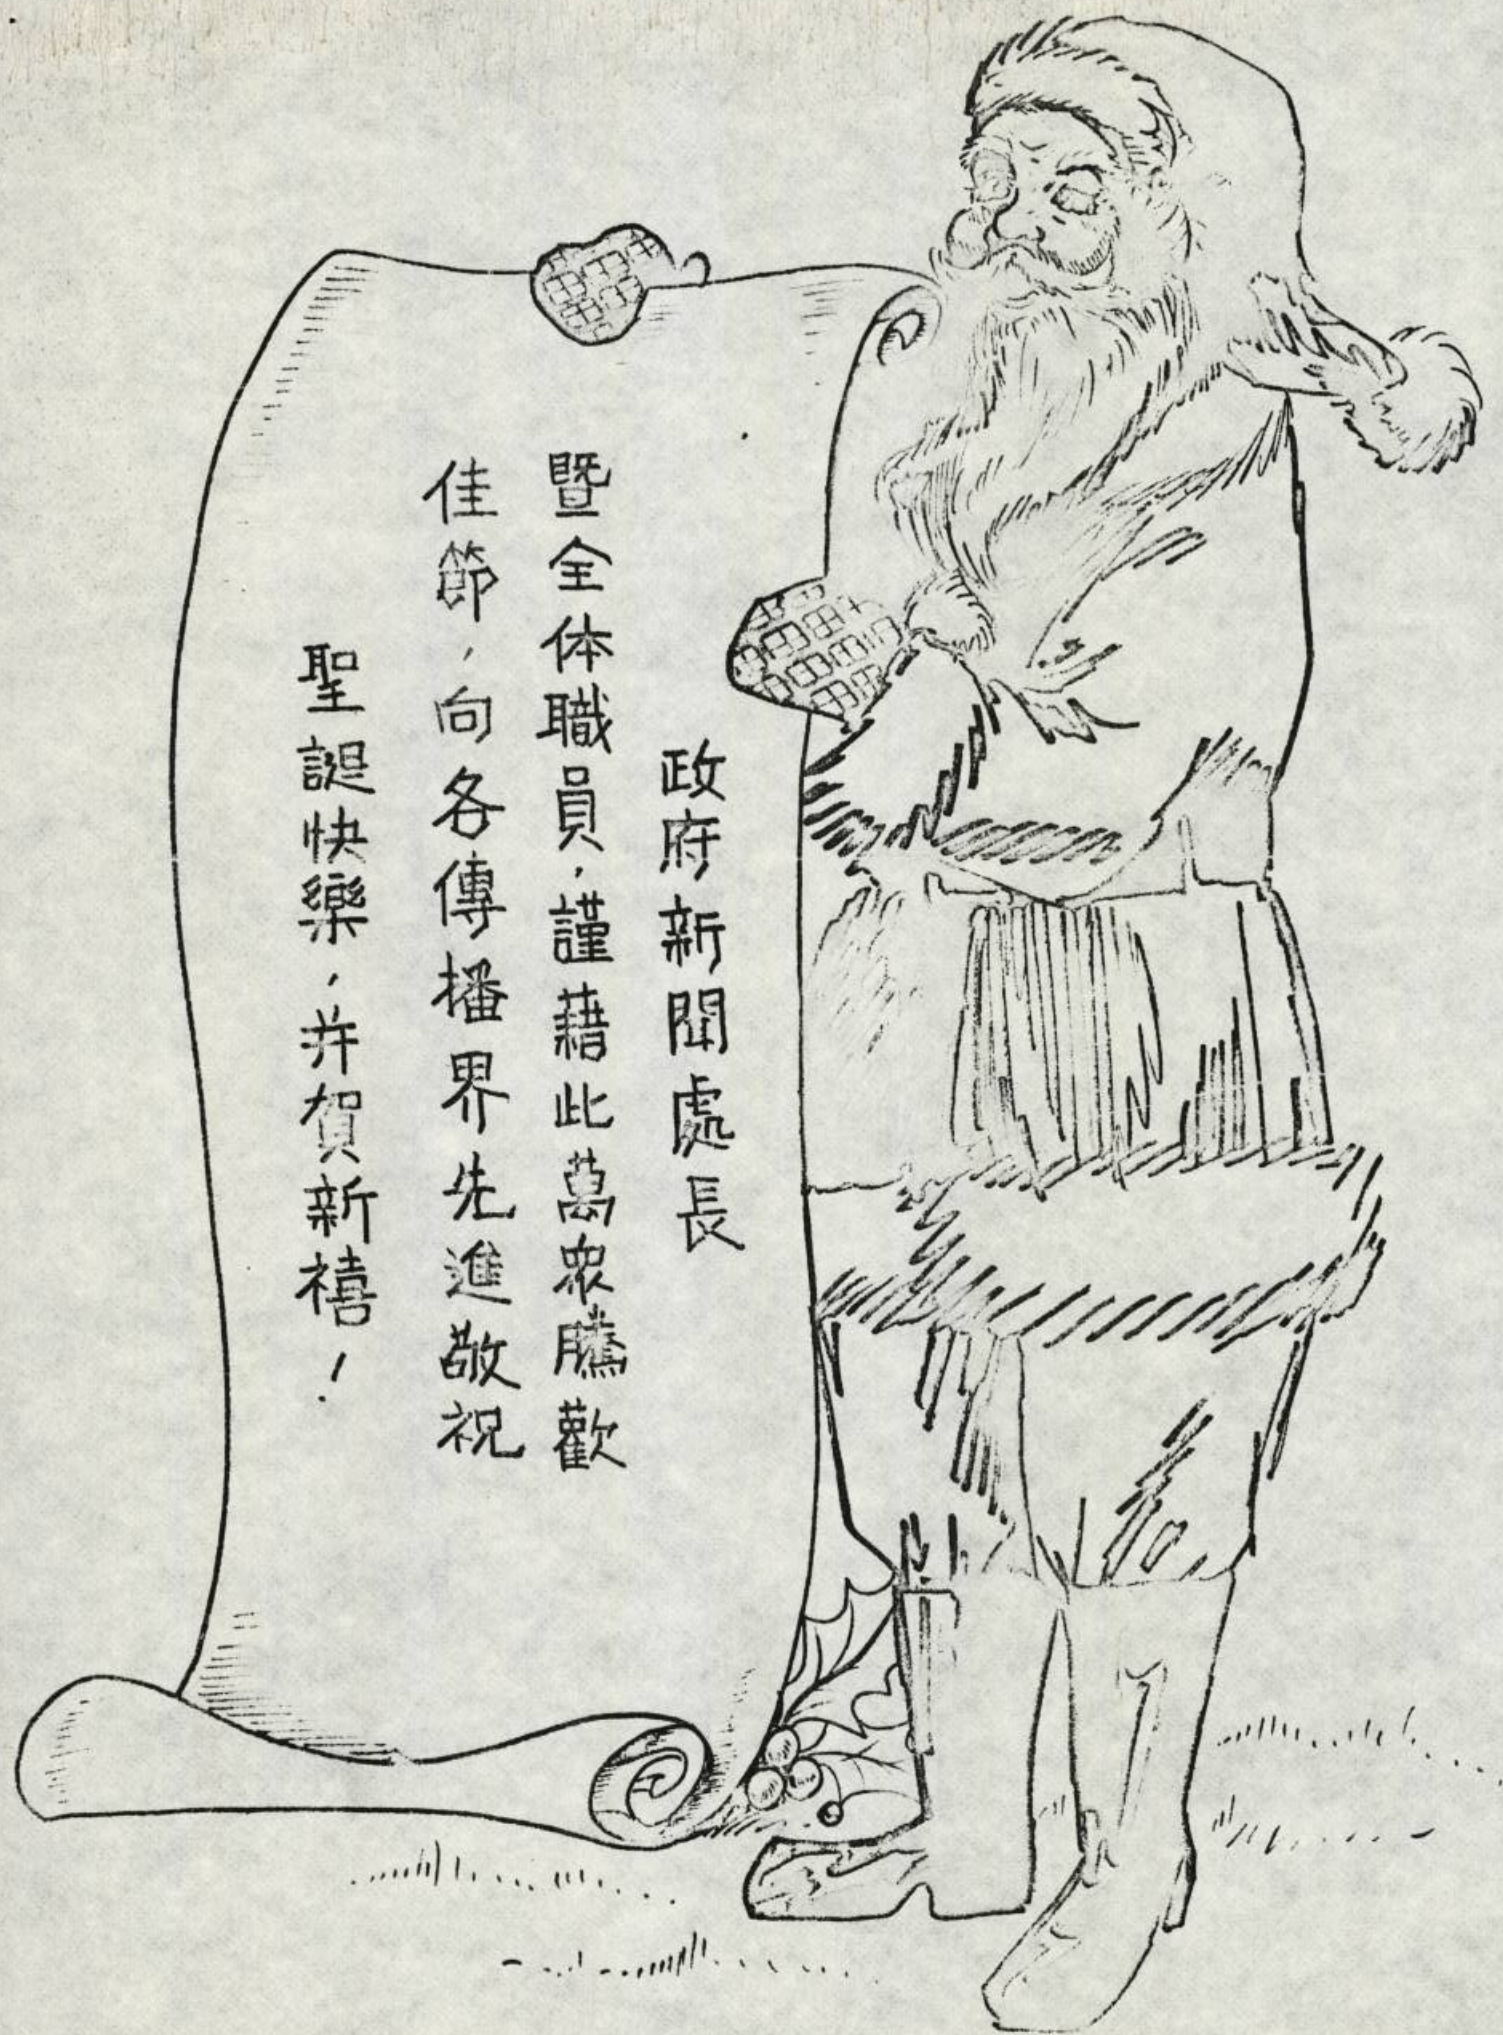 政府新聞處長
暨全体職員，謹藉此萬眾騰歡
佳節，向各傳播界先進敬祝
聖誕快樂，并賀新禧！